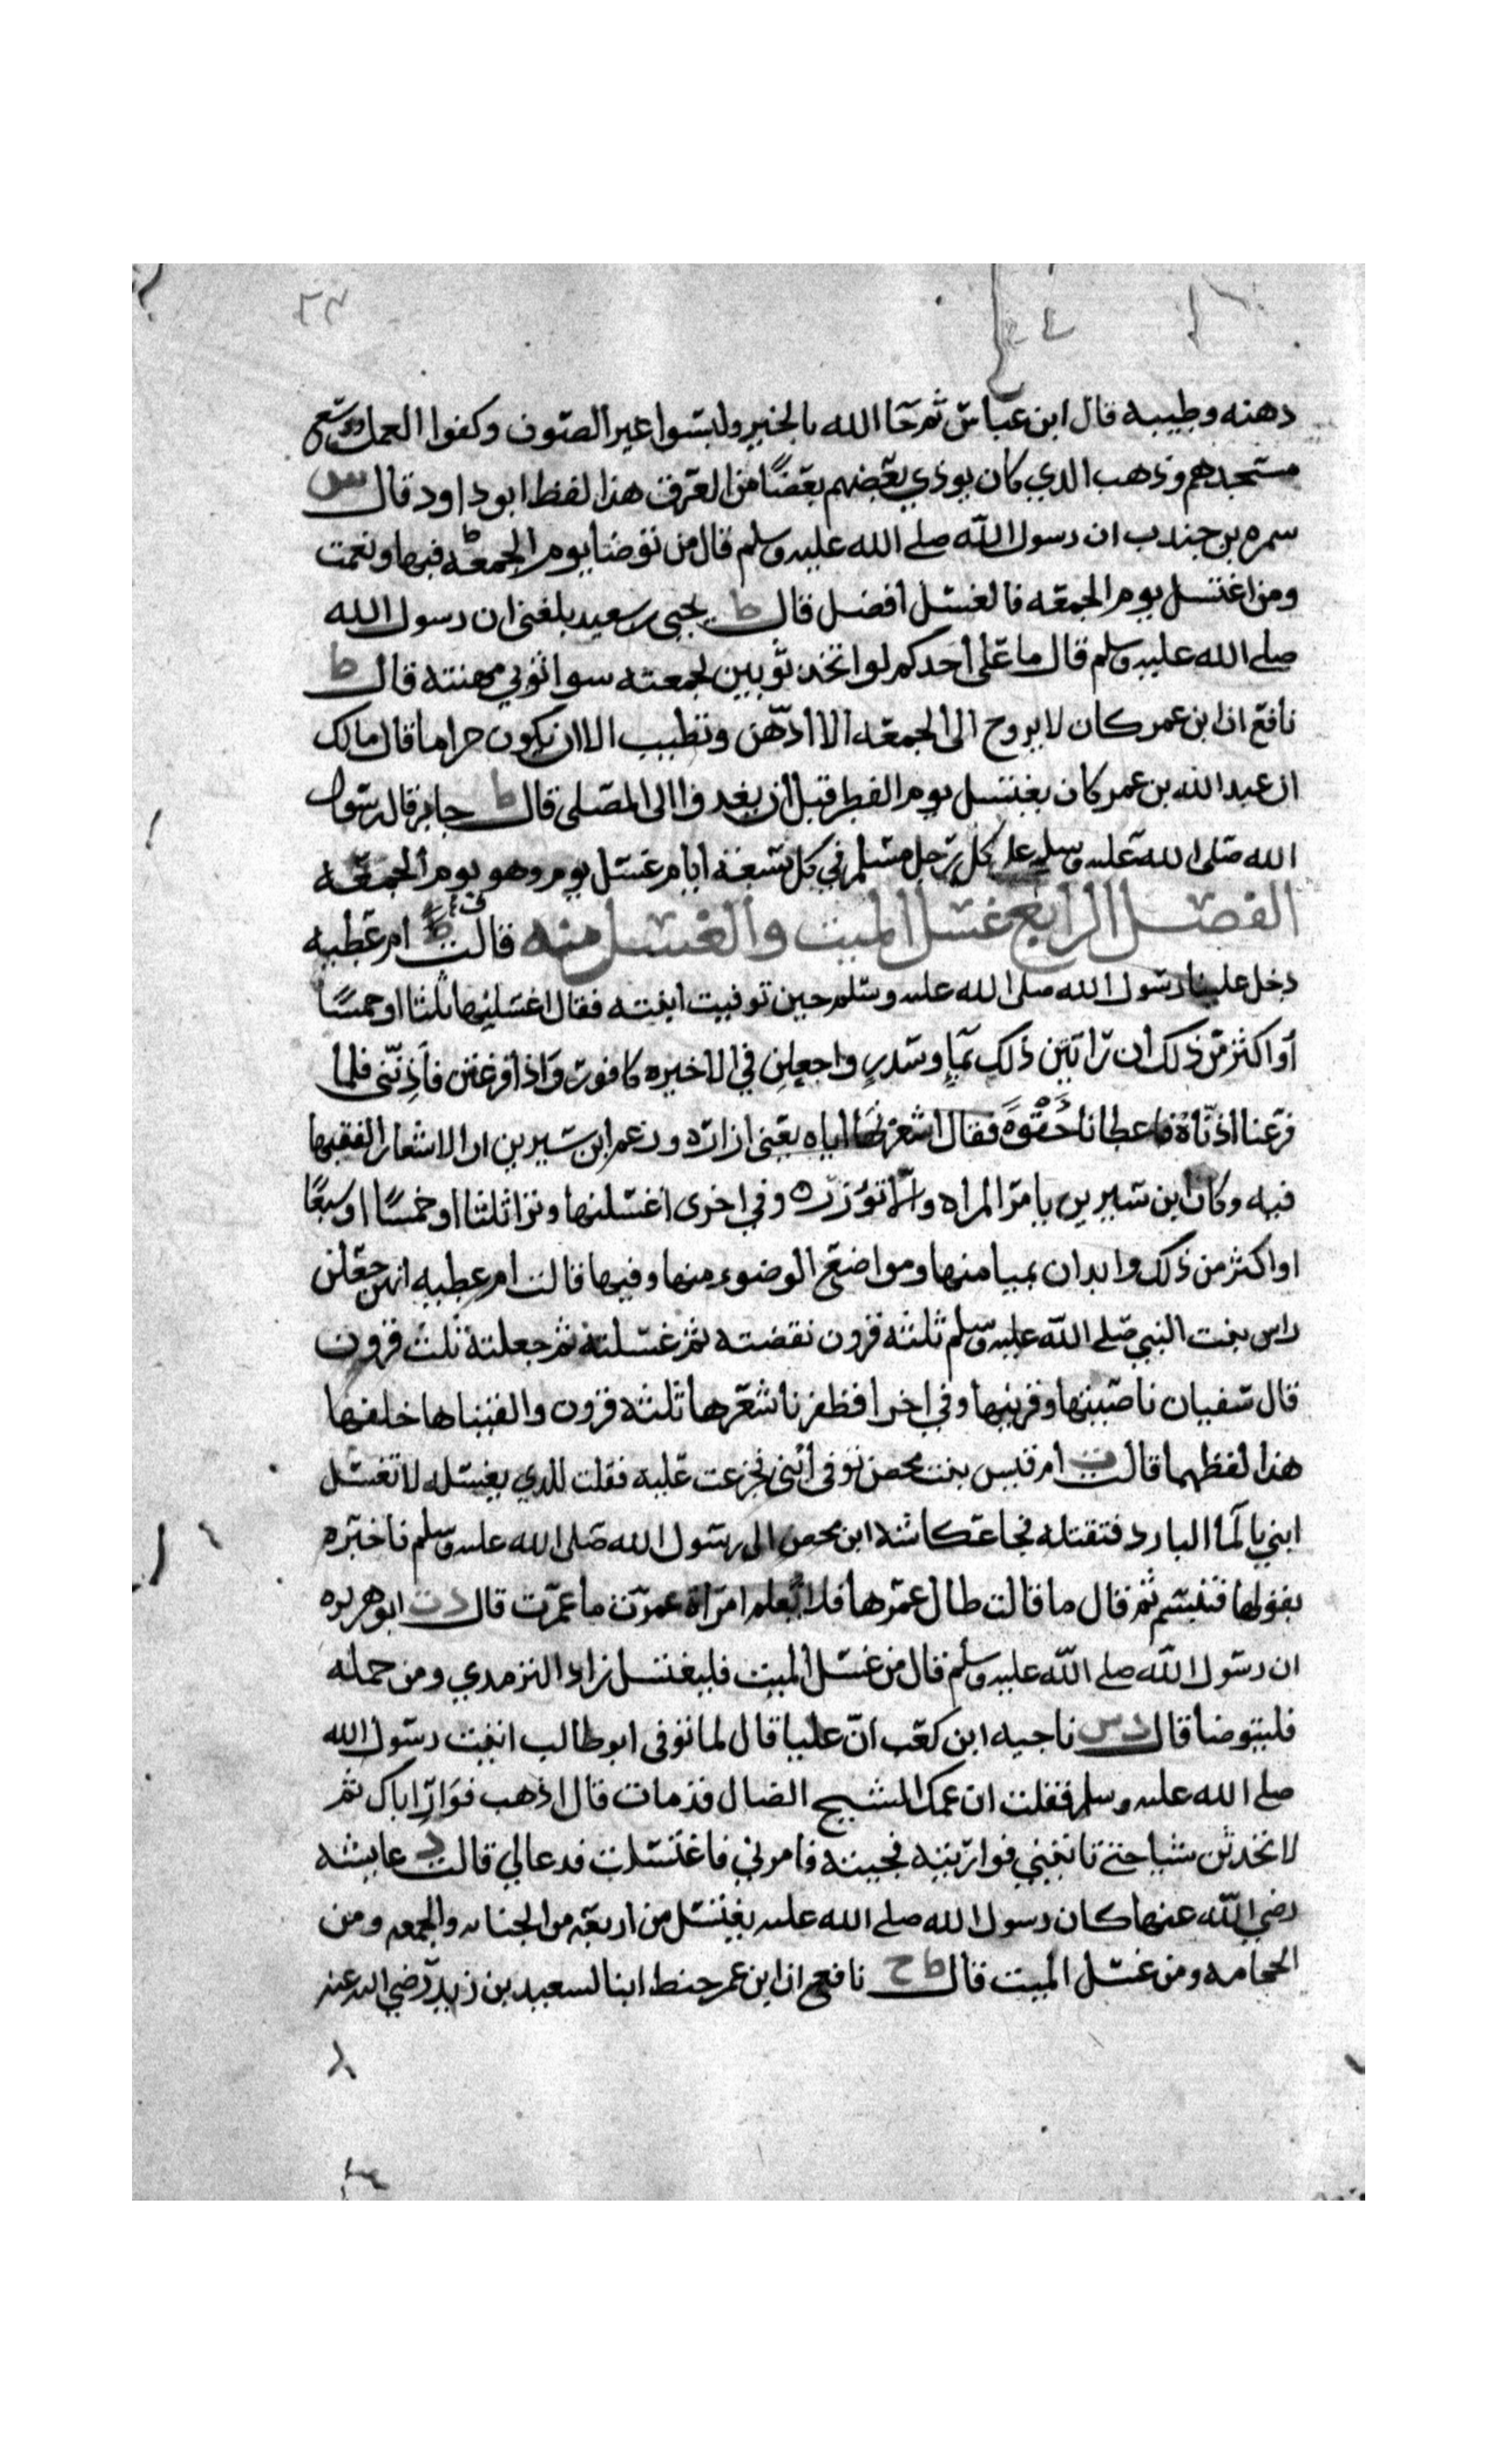 ٢٣
دهنه وطيبه قال ابن عباس ثم جا الله بالخير ولبسوا غير الصوف وكفوا العمل ووسع
مسجدهم وذهب الذي كان يوذي بعضهم بعضًا من العرق هذا لفظ ابو داود قال س
سمره بن جندب ان رسول الله صلى الله عليه وسلم قال من توضا يوم الجمعة فبها ونعمت
ومن اغتسل يوم الجمعه فالغسل افضل قال ط يحيى بن سعيد بلغني ان رسول الله
صلى الله عليه وسلم قال ما على احدكم لو اتخذ ثوبين لجمعته سوا ثوبي مهنته قال ط
نافع ان ابن عمر كان لا يروح الى الجمعه الا ادّهن وتطيب الا ان يكون حراما قال مالك
ان عبد الله بن عمر كان يغتسل يوم الفطر قبل ان يغدوا الى المصلى قال ط جابر قال رسول
الله صلى الله عليه وسلم على كل رجل مسلم في كل سبعة ايام غسل يوم وهو يوم الجمعه
الفصل الرابع غسل الميت والغسل منه قالت ام عطيه
دخل علينا رسول الله صلى الله عليه وسلم حين توفيت ابنته فقال اغسلنها ثلثا او خمسًا
أو اكثر من ذلك ان رايتن ذلك بماٍ وسدرٍ واجعلن في الاخيره كافور واذا فرغتن فآذِنّني فلما
فرغنا اذنّاهُ فاعطانا حَقْوَهُ فقال اشعرنها اياه يعني ازاره وزعم ابن سيرين ان الاشعار الففيها
فيه وكان ابن سيرين يامر المراه ولا توزره وفي اخرى اغسلنها وترا ثلثا او خمسًا او سبعًا
او اكثر من ذلك وابدان بميامنها ومواضع الوضوء منها وفيها قالت ام عطيه انهن جعلن
راس بنت النبي صلى الله عليه وسلم ثلثه قرون نقضته ثم غسلته ثم جعلته ثلث قرون
قال سفيان ناصيتها وقرنيها وفي اخرا فظفرنا شعرها ثلثه قرون والقيناها خلفها
هذا لفظهما قالت ام قيس بنت محصن توفى ابني فجزعت عليه فقلت للذي يغسله لا تغسل
ابني بالما البارد فتقتله فجا عكاشه ابن محصن الى رسول الله صلى الله عليه وسلم فاخبره
بقولها فتبسم ثم قال ما قالت طال عمرها فلا نعلم امراة عمرت ما عمرت قال دت ابو هريره
ان رسول الله صلى الله عليه وسلم قال من غسل الميت فليغتسل زاد الترمدي ومن حمله
فليتوضا قال دس ناجيه ابن كعب انّ عليا قال لما توفى ابو طالب اتيت رسول الله
صلى الله عليه وسلم فقلت ان عمك الشيخ الضال قد مات قال اذهب فوارِ اباك ثم
لا تحدثن شيا حتى تاتيني فواريته فجيته فامرني فاغتسلت فدعا لي قالت د عايشه
رضي الله عنها كان رسول الله صلى الله عليه يغتسل من اربعه من الجنابه والجمعه ومن
الحجامه ومن غسل الميت قال ط خ نافع ان ابن عمر حنط ابنا لسعيد بن زيد رضي الله عنه